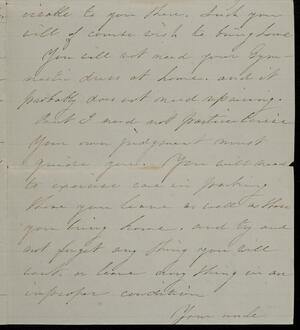 visable to you there. Such you
will of course wish to bring home
You will not need your Gym-
nastic dress at home. and it
probably does not need repairing.
But I need not particularize
Your own judgment must
guide you. You will need
to exercise care in packing
those you leave as well as those
you bring home, and try and
not forget any thing you will
want, or leave any thing in an
improper condition
Your uncle